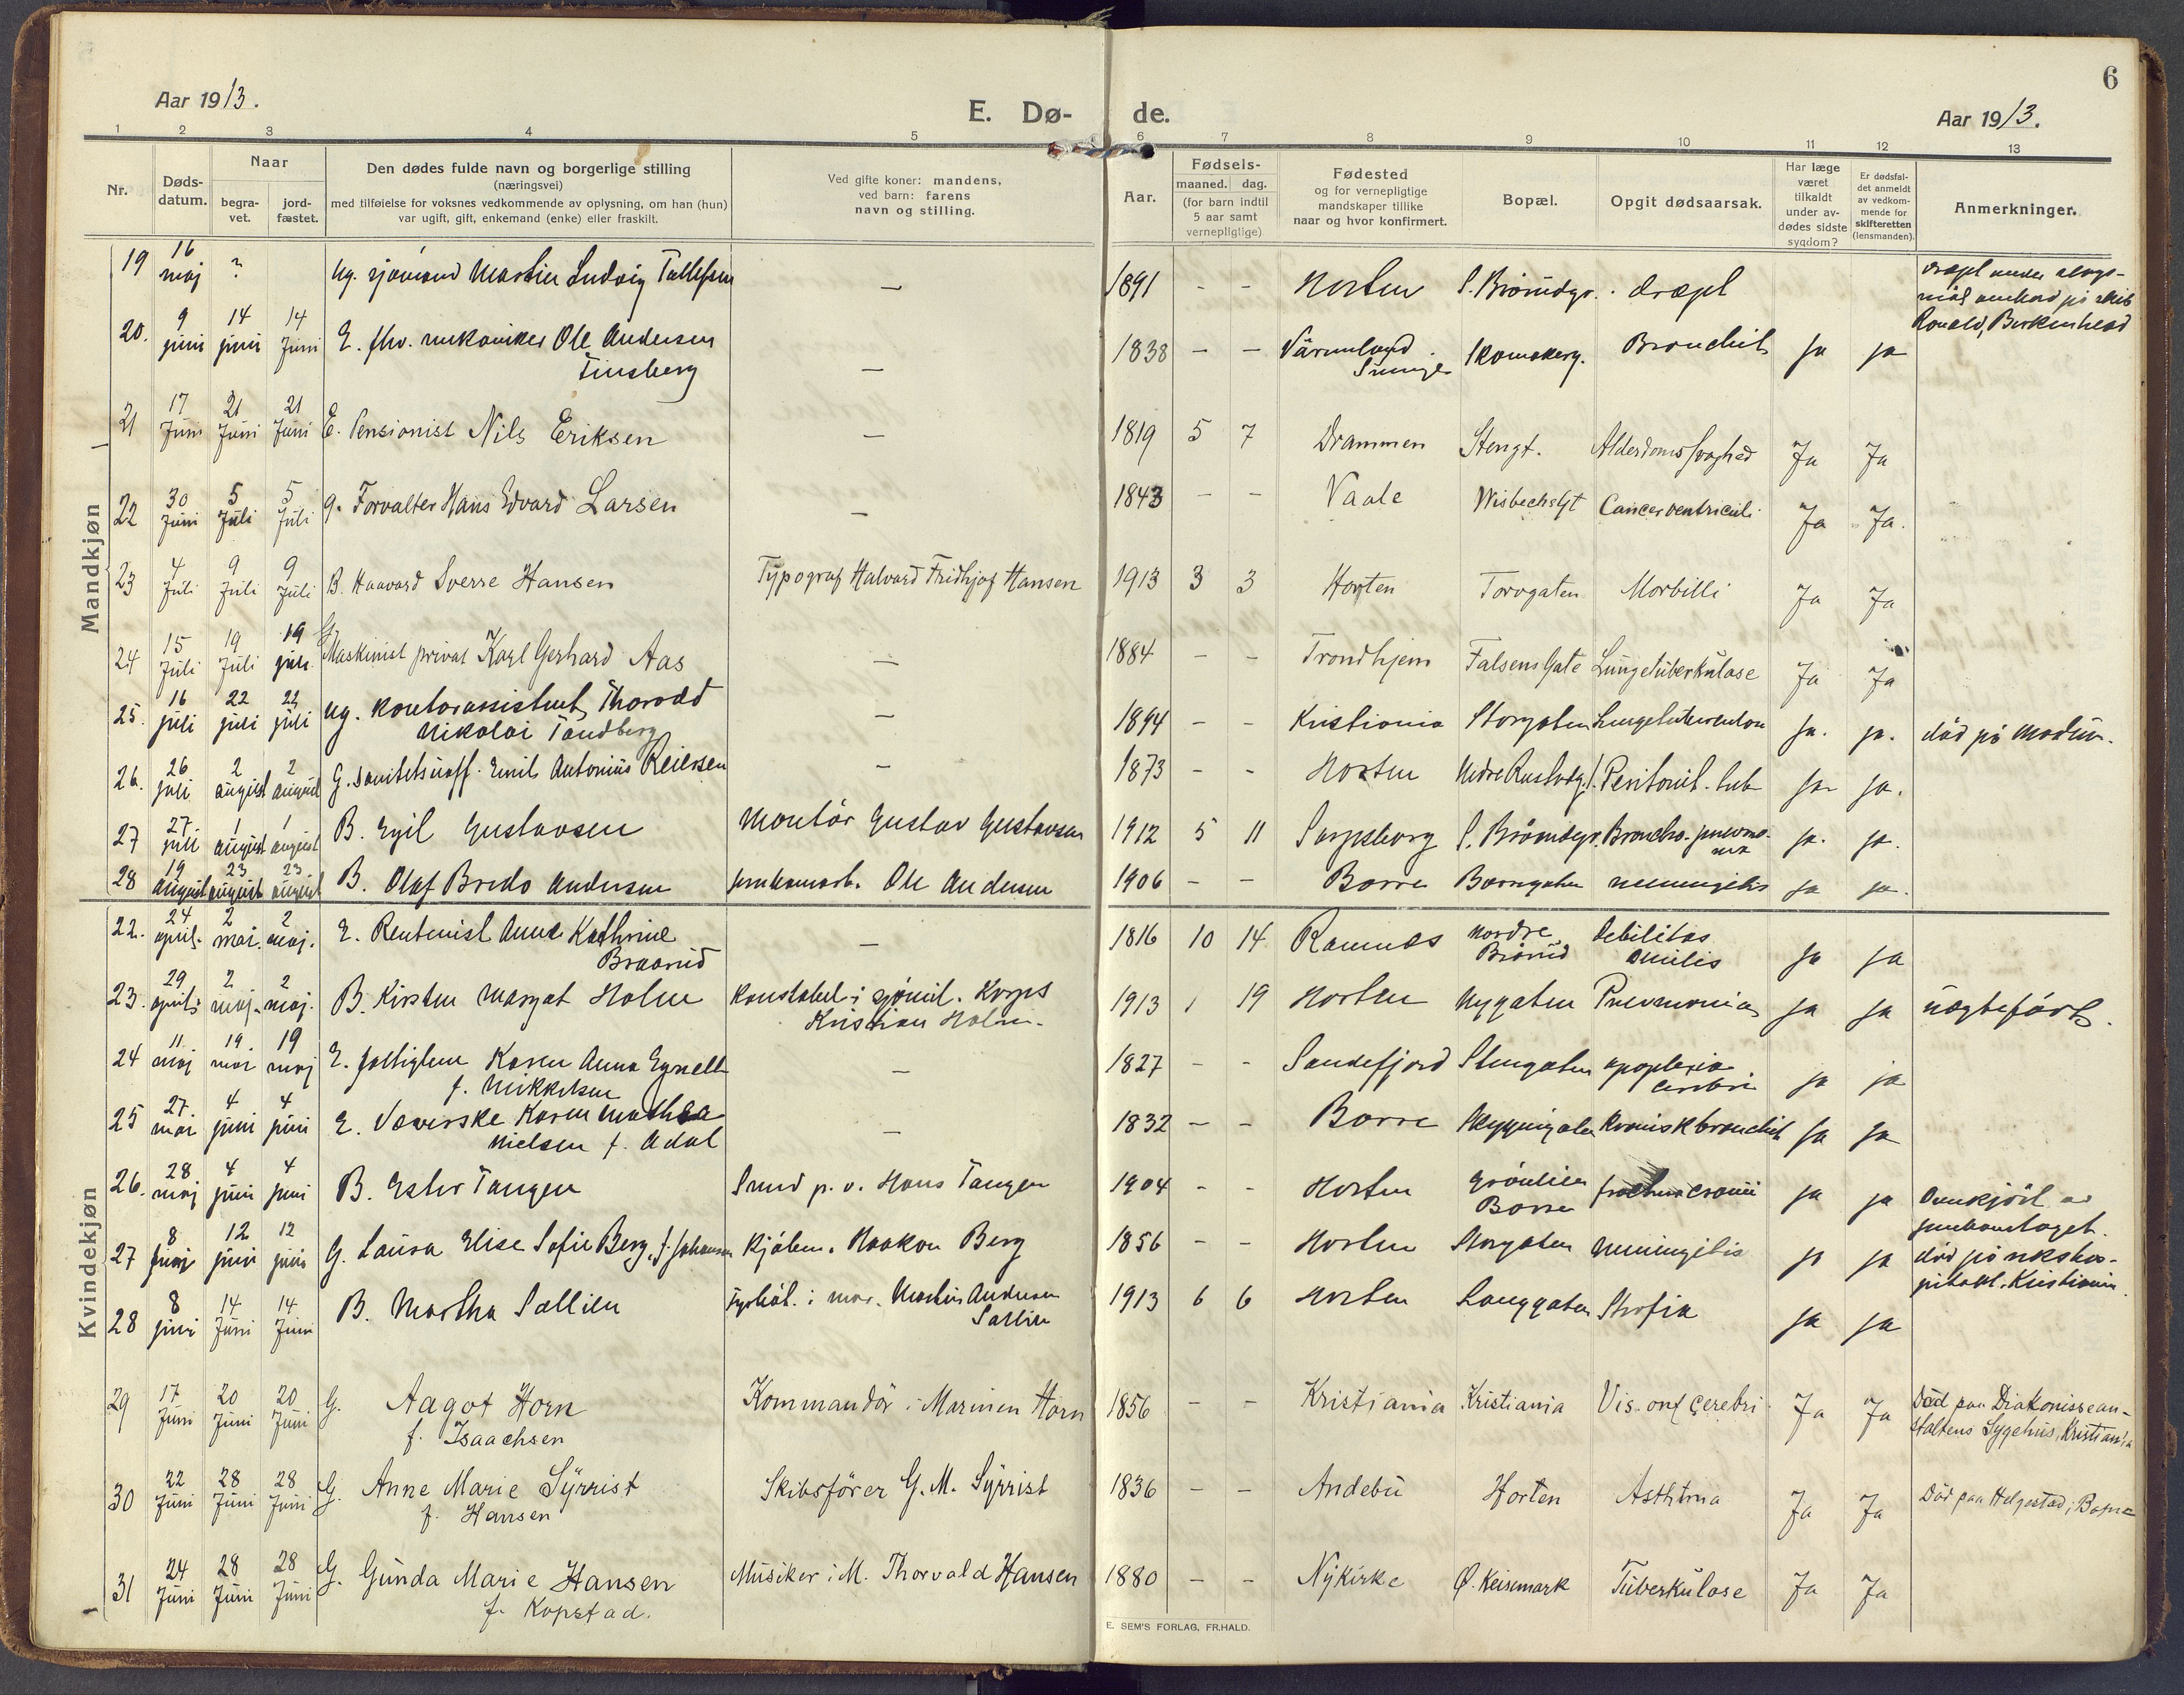 6
Aar 1913.
E. Dø- de.
Aar 1913.
1 2 3 4 5 6 7 8 9 10 11 12 13
Nr.
Døds-datum.
Naar
begra-vet.
jord-fæstet.
Den dødes fulde navn og borgerlige stilling
(næringsvei)
med tilføielse for voksnes vedkommende av oplysning, om han (hun)
var ugift, gift, enkemand (enke) eller fraskilt.
Ved gifte koner: mandens,
ved barn: farens
navn og stilling.
Aar.
Fødsels-
maaned. dag.
(for barn indtil
5 aar samt
vernepligtige)
Fødested
og for vernepligtige
mandskaper tillike
naar og hvor konfirmert.
Bopæl.
Opgit dødsaarsak.
Har læge
været
tilkaldt
under av-
dødes sidste
sygdom?
Er dødsfal-
det anmeldt
av vedkom-
mende for
skifteretten
(lensmanden).
Anmerkninger.
Mandkjøn
19 16 maj ? Ug. sjømand Martin Ludvig Tollefsen — 1891 - - Horten S. Brårudgr. dræpt dræpt under slags-
mål ombord på skib
Ronald, Birkenhead
20. 9 juni 14 juni 14 Juni E. fhv. mekaniker Ole Andersen
Tinsberg — 1838 - - Värmland Skomakerg. Bronchit ja ja
21 17 Juni 21 Juni 21 Juni E. Pensionist Nils Eriksen — 1819 5 7 Drammen Stengt. Alderdomssvaghed Ja Ja
22 30 Juni 5 Juli 5 Juli g. Forvalter Hans Edvard Larsen — 1843 - - Vaale Wisbechsgt Cancer ventriculi Ja Ja.
23 4 Juli 9 Juli 9 Juli B. Haavard Sverre Hansen Typograf Halvard Fridhjof Hansen 1913 3 3 Horten Torvgaten Morbilli Ja Ja
24 15 Juli 19 Juli 19 juli G. Maskinist privat Karl Gerhard Aas — 1884 - - Trondhjem Falsens Gate Lungetuberkulose Ja Ja
25. 16 juli 22 juli 22 juli ug. kontorassistent Thorodd
Nikolai Tandberg — 1894 - - Kristiania Storgaten Ja. ja. død på Modum.
26. 26 juli 2 august 2 august G. sanitetsuoff. Emil Antonius Reiersen — 1873 - - Horten Peritonit. tub ja ja.
27 27. juli 1 august 1 august B. Egil Gustavsen Montör Gustav Gustavsen 1912 5 11 Sarpsborg S. Brårudgr. Broncho-pneumo-
nia ja. ja.
28 19 august 23 august 23 august B. Olaf Bredo Andersen jernbanearb. Ole Andersen 1906 - - Borre Borregaten meningitis ja ja.
Kvindekjøn
22. 24 april. 2 mai. 2 maj. E. Rentenist Anne Kathrine
Braarud — 1816 10 14 Ramnes Nordre
Brårud Debilitas
senilis ja ja
23. 29 april 2 maj. 2 maj. B. Kirsten Margot Holm Konstabel i sjømil. Korps
Kristian Holm. 1913 1 19 Horten Nygaten Pneumonia ja ja uægtefødt.
24 11. maj 19. mai 19 maj E. Karen Anna Egnell
f. Mikkelsen — 1827 - - Sandefjord Stengaten apoplexia
cerebri ja ja
25 27. mai 4 juni 4 juni E. Væverske Karen Mathea
Nielsen f. Adal — 1832 - - Borre Skyggegaten Kronisk bronchit ja ja
26. 28 maj 4 juni 4 juni B. Ester Tangen Smed p. v. Hans Tangen 1904 - - Horten Grönlien
Borre fractura cranii ja ja Overkjört av
jernbanetoget.
27 8 juni 12 juni 12 juni G. Laura Elise Sofie Berg, f. Johansen Kjøbm. Haakon Berg 1856 - - Horten Storgaten Meningitis ja ja död på rikshos-
pitalet. Kristiania.
28 8 juni 14 Juni 14 Juni B. Martha Sællien Fyrböt. i mar. Martin Andersen
Sællien 1913 6 6 Horten Langgaten Atrofia ja ja
29 17 Juni 20 Juni 20 Juni G. Aagot Horn
f. Isaachsen Kommandör i Marinen Horn 1856 - - Kristiania Kristiania Vis. org cerebri Ja Ja Död paa Diakonissean-
staltens Sygehus, Kristiania
30 22 Juni 28 Juni 28 Juni G. Anne Marie Syrrist
f. Hansen Skibsfører G. M. Syrrist 1836 - - Andebu Horten Asthma Ja Ja Död paa Helgestad i Borre
31 24 Juni 28 Juni 28 Juni G. Gunda Marie Hansen
f. Kopstad. Musiker i M. Thorvald Hansen 1880 - - Nykirke Ø. Keisemark Tuberkulose Ja Ja
E. SEM'S FORLAG, FR.HALD.